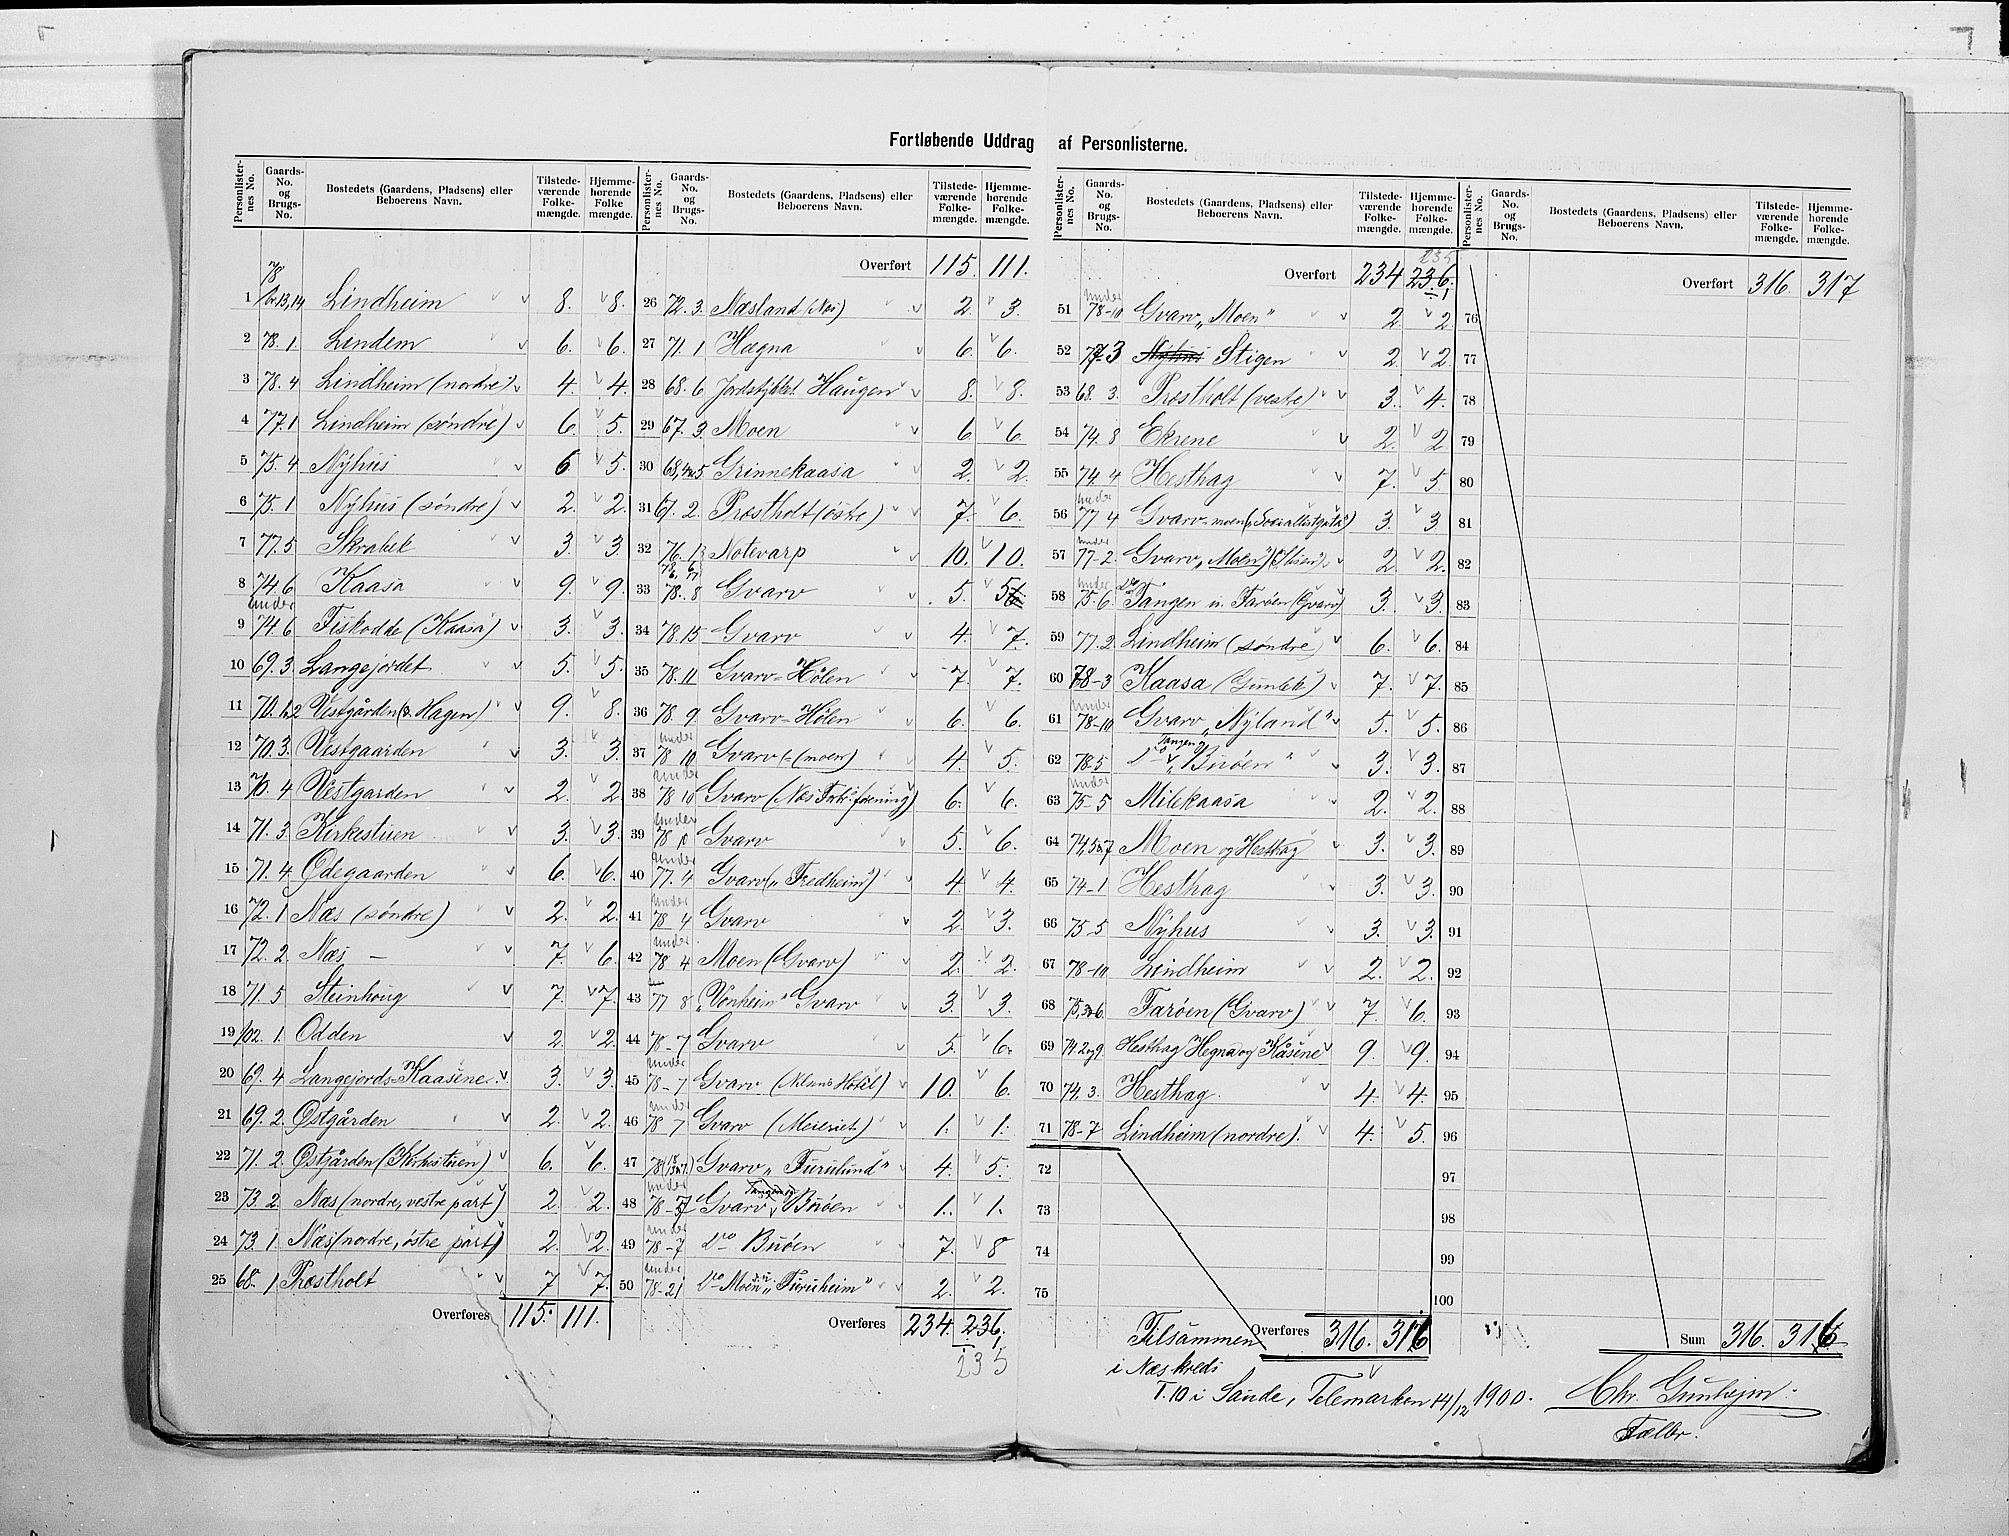 Fortløbende Uddrag af Personlisterne.
Personlister-nes No. Gaards-No. og Brugs-No. Bostedets (Gaardens, Pladsens) eller Beboerens Navn. Tilstede-værende Folke-mængde. Hjemme-hørende Folke mængde.
1 78 13,14 Lindheim 8. 8.
2 78. 1. Lindem 6. 6.
3 78. 4 Lindheim (nordre) 4. 4.
4 77. 1 Lindheim (søndre) 6. 5.
5 75. 4 Nÿhus 6 5.
6 75. 1 Nÿhus (søndre) 2. 2.
7 77. 5 Skrabek 3. 3.
8 74. 6 Kaasa 9. 9.
9 under 74. 6 Fiskodde (Kaasa) 3. 3.
10 69. 3. Langejordet 5. 5.
11 70. 1,2 Vestgården (& Hagen) 9. 8.
12 70. 3. Vestgaarden 3. 3.
13 70. 4 Vestgarden 2. 2
14 71. 3. Kirkestuen 3. 3.
15 71. 4 Ødegaarden 6. 6.
16 72. 1 Næs (søndre) 2. 2.
17 72. 2. Næs — 7. 6.
18 71. 5 Steinhoug 7. 7.
19 102. 1. Odden 2. 2.
20 69. 4 Langejords-Kaasene. 3. 3.
21 69. 2. Østgården 2. 2.
22 71. 2. Østgården (Kirkestuen) 6. 6.
23 73. 2. Næs (nordre, vestre part) 2. 2.
24 73. 1. Næs (nordre, østre part) 2. 2.
25 68. 1 Præstholt 7 7.
Overføres 115. 111.
Personlister-nes No. Gaards-No. og Brugs-No. Bostedets (Gaardens, Pladsens) eller Beboerens Navn. Tilstede-værende Folke-mængde. Hjemme-hørende Folke-mængde.
Overført 115. 111.
26 72. 3. Næsland (Næs) 2. 3.
27 71. 1 Hægna 6. 6.
28 68. 6 Jordstykket Haugen 8. 8.
29 67. 3. Moen 6. 6
30 68, 4 5 Grinnekaasa 2. 2.
31 67. 2. Præstholt (østre) 7. 6.
32 76. 1 Notevarp 10. 10.
33 78. 8 Gvarv 5. 5
34 78. 15 Gvarv 4. 7.
35 78. 11 Gvarv-Hølen 7. 7.
36 78. 9. Gvarv-Hølen 6. 6.
37 under 78 10 Gvarv (moen) 4. 5.
38 under 78 10 Gvarv (Næs Forb.forening) 6. 6.
39 under 78 Gvarv 5. 6.
40 under 77. 4 Gvarv („Fredheim") 4. 4.
41 under 78 4 Gvarv 2. 3.
42 under 78 4 Moen (Gvarv) 2. 2.
43 77 8 „Vonheim" Gvarv 3. 3.
44 78-7 Gvarv 5. 6.
45 under 78-7 Gvarv (Hotel) 10. 6.
46 under 78 7 Gvarv (Meieriet) 1. 1.
47 78 Gvarv „Furulund" 4. 5.
48 under 78-7 Gvarv Buøen 1. 1.
49 under 78-7 do Buøen 7. 8
50 under 78-21 do Moen „Furuheim" 2. 2.
Overføres 234. 236.
235
Personlister-nes No. Gaards-No. og Brugs-No. Bostedets (Gaardens, Pladsens) eller Beboerens Navn. Tilstede-værende Folke-mængde. Hjemme-hørende Folke-mængde.
235
Overført 234 236.
51 under 78-10 Gvarv „Moen" 2. 2.
52 77 3 Stigen 2. 2.
53 68. 3. Præstholt (vestre) 3. 4.
54 74. 8 Ekrene 2. 2
55 74. 4 Hesthag 7. 5
56 under 77 4 Gvarv-moen 3. 3
57 under 77-2. Gvarv „Moen" 2 2.
58 under 75. 6 do Tangen u. Farøen (Gvarv) 3. 3.
59 77. 2 Lindheim (søndre) 6. 6.
60 78-3 Kaasa (Gunlek) 7. 7.
61 under 78-10 Gvarv „Nÿland" 5. 5.
62 78. 5 do Tangen „Buøen" 3. 3.
63 under 75-5 Milekaasa 2. 2.
64 74, 5 7 Moen og Hesthag 3. 3.
65 74-1 Hesthag 3. 3.
66 75-5 Nÿhus 3. 3.
67 78-10 Lindheim 2. 2.
68 75, 3 6. Farøen (Gvarv) 7. 6.
69 74. 2 og 9. Hesthag Hegna og Kåsene 9. 9.
70 74, 3. Hesthag. 4. 4.
71 78-7 Lindheim (nordre). 4. 5.
72
73
74
75
Overføres 316. 316
Tilsammen
i Næs kreds
T. 10 i Saude, Telemarken 14/12 1900.
Personlister-nes No. Gaards-No. og Brugs-No. Bostedets (Gaardens, Pladsens) eller Beboerens Navn. Tilstede-værende Folke-mængde. Hjemme-hørende Folke-mængde.
Overført 316. 317
76
77
78
79
80
81
82
83
84
85
86
87
88
89
90
91
92
93
94
95
96
97
98
99
100
Sum 316. 316
Chr. Gunhejm.
Tæller.